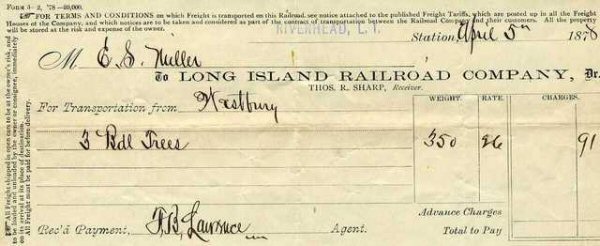 FORM 3-2, '78-20,000.
FOR TERMS AND CONDITIONS on which Freight is transported on this Railroad, see notice attached to the published Freight Tariffs, which are posted up in all the Freight
Houses of the Company, and which notices are to be taken and considered as part of the contract of transportation between the Railroad Company and their customers. All the property
will be stored at the risk and expense of the owner.
RIVERHEAD, L. I.
Station, April 5th 1878
M E. S. Miller
To LONG ISLAND RAILROAD COMPANY, Dr.
THOS. R. SHARP, Receiver.
For Transportation from Westbury
WEIGHT. RATE. CHARGES.
3 Bdl Trees 350 26 91
Advance Charges
Rec'd Payment, F. B. Lawrence Agent. Total to Pay
All Freight shipped in open cars to be at the owner's risk, and
to be loaded and unloaded by the owner or consignee, immediately
on its arrival at its place of destination.
All Freight must be paid for before delivery.